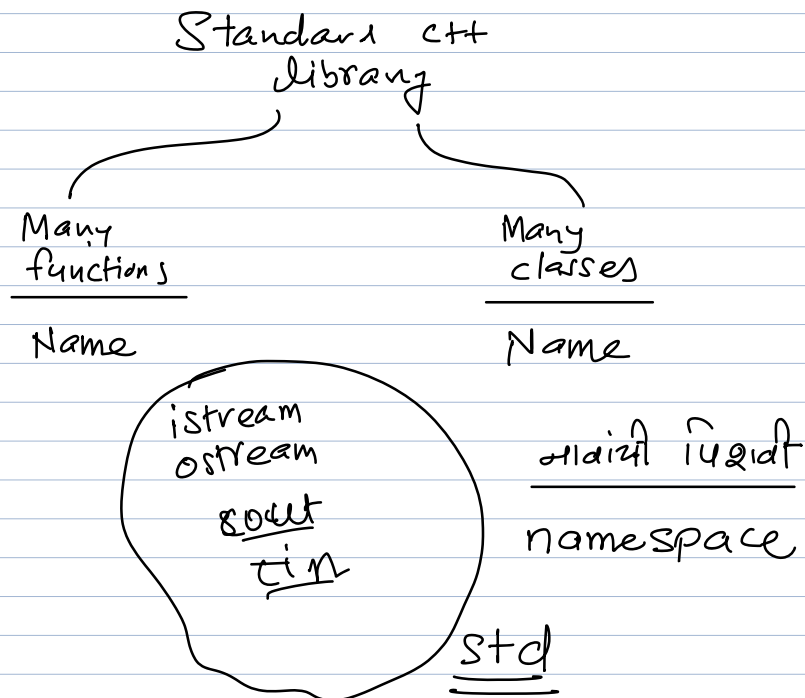 Standard C++
library
Many functions
Many classes
Name
Name
istream
ostream
cout
cin
नावांची पिशवी
namespace
std